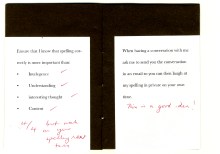 Ensure that I know that spelling cor-
rectly is more important than:
• Intelligence
• Understanding
• interesting thought
• Content
10/10 but work
on your
spelling
When having a conversation with me
ask me to send you the conversation
in an email so you can then laugh at
my spelling in private on your own
time.
This is a good idea!